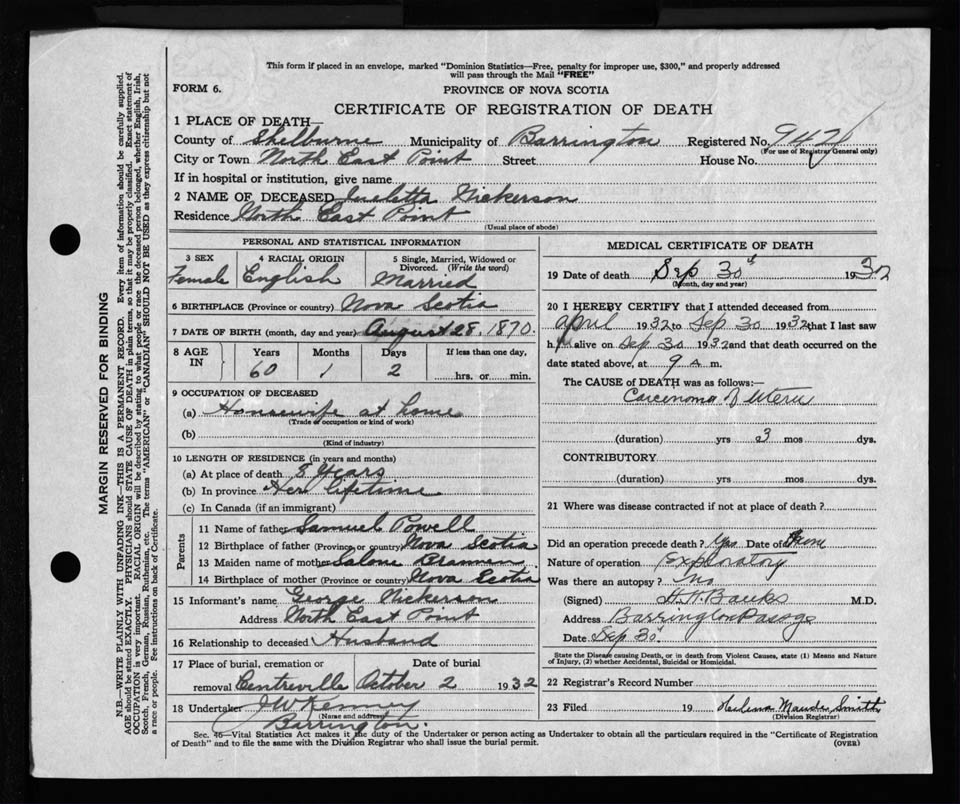 This form if placed in an envelope, marked "Dominion Statistics—Free, penalty for improper use, $300," and properly addressed
will pass through the Mail "FREE"
FORM 6.
PROVINCE OF NOVA SCOTIA
CERTIFICATE OF REGISTRATION OF DEATH
1 PLACE OF DEATH—
County of Shelburne Municipality of Barrington Registered No. 9426
(For use of Registrar General only)
City or Town North East Point Street House No.
If in hospital or institution, give name
2 NAME OF DECEASED Nickerson
Residence North East Point
(Usual place of abode)
PERSONAL AND STATISTICAL INFORMATION
3 SEX 4 RACIAL ORIGIN 5 Single, Married, Widowed or
Divorced. (Write the word)
Female English Married
6 BIRTHPLACE (Province or country) Nova Scotia
7 DATE OF BIRTH (month, day and year) August 28. 1870.
8 AGE IN Years Months Days If less than one day,
60 1 2 hrs. or min.
9 OCCUPATION OF DECEASED
(a) Housewife at home
(Trade or occupation or kind of work)
(b)
(Kind of industry)
10 LENGTH OF RESIDENCE (in years and months)
(a) At place of death 8 Years
(b) In province Her lifetime
(c) In Canada (if an immigrant)
Parents
11 Name of father Samuel Powell
12 Birthplace of father (Province or country) Nova Scotia
13 Maiden name of mother Salome
14 Birthplace of mother (Province or country) Nova Scotia
15 Informant's name George Nickerson
Address North East Point
16 Relationship to deceased Husband
17 Place of burial, cremation or Date of burial
removal Centreville October 2 1932
18 Undertaker J W Kenney
(Name and address)
Barrington.
MEDICAL CERTIFICATE OF DEATH
19 Date of death Sep 30th 1932
(Month, day and year)
20 I HEREBY CERTIFY that I attended deceased from
April 1932 to Sep 30 1932 that I last saw
h alive on Sep 30 1932 and that death occurred on the
date stated above, at 9 a m.
The CAUSE of DEATH was as follows:—
Carcinoma of Uteru
(duration) yrs 3 mos dys.
CONTRIBUTORY
(duration) yrs mos dys.
21 Where was disease contracted if not at place of death?
Did an operation precede death? Yes Date of June
Nature of operation Exploratory
Was there an autopsy? No
(Signed) Banks M.D.
Address Barrington Passage
Date Sep 30.
State the Disease causing Death, or in death from Violent Causes, state (1) Means and Nature
of Injury, (2) whether Accidental, Suicidal or Homicidal.
22 Registrar's Record Number
23 Filed 19 Helena Maude Smith
(Division Registrar)
Sec. 46—Vital Statistics Act makes it the duty of the Undertaker or person acting as Undertaker to obtain all the particulars required in the "Certificate of Registration
of Death" and to file the same with the Division Registrar who shall issue the burial permit.
(OVER)
MARGIN RESERVED FOR BINDING
N.B.—WRITE PLAINLY WITH UNFADING INK—THIS IS A PERMANENT RECORD. Every item of information should be carefully supplied.
AGE should be stated EXACTLY. PHYSICIANS should STATE CAUSE OF DEATH in plain terms, so that it may be properly classified. Exact statement of
OCCUPATION is very important. RACIAL ORIGIN will be described by stating to what people or race the deceased person belonged, whether English, Irish,
Scotch, French, German, Russian, Ruthenian, etc. The terms "AMERICAN" or "CANADIAN" SHOULD NOT BE USED as they express citizenship but not
a race or people. See instructions on back of Certificate.